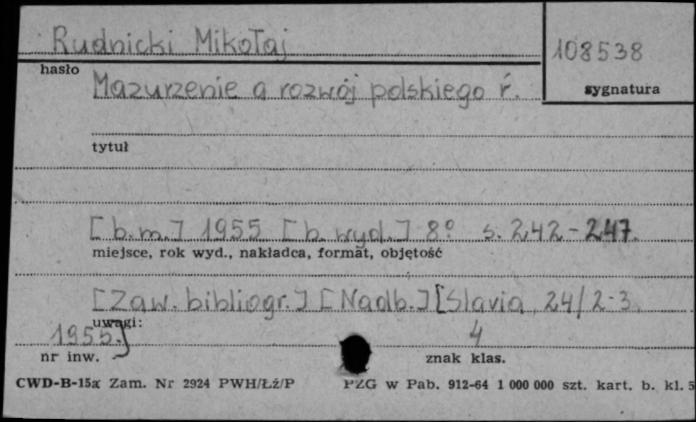 Rudnicki Mikołaj
108538
hasło
sygnatura
Mazurzenie a rozwój polskiego ŕ.
tytuł
[b.m.] 1955 [b. wyd.] 8° s. 242-247.
miejsce, rok wyd., nakładca, format, objętość
[Zaw. bibliogr.] [Nadb.] [Slavia 24/2-3
uwagi:
1955.] 4
nr inw. znak klas.
CWD-B-15a Zam. Nr 2924 PWH/Łź/P PZG w Pab. 912-64 1 000 000 szt. kart. b. kl. 5